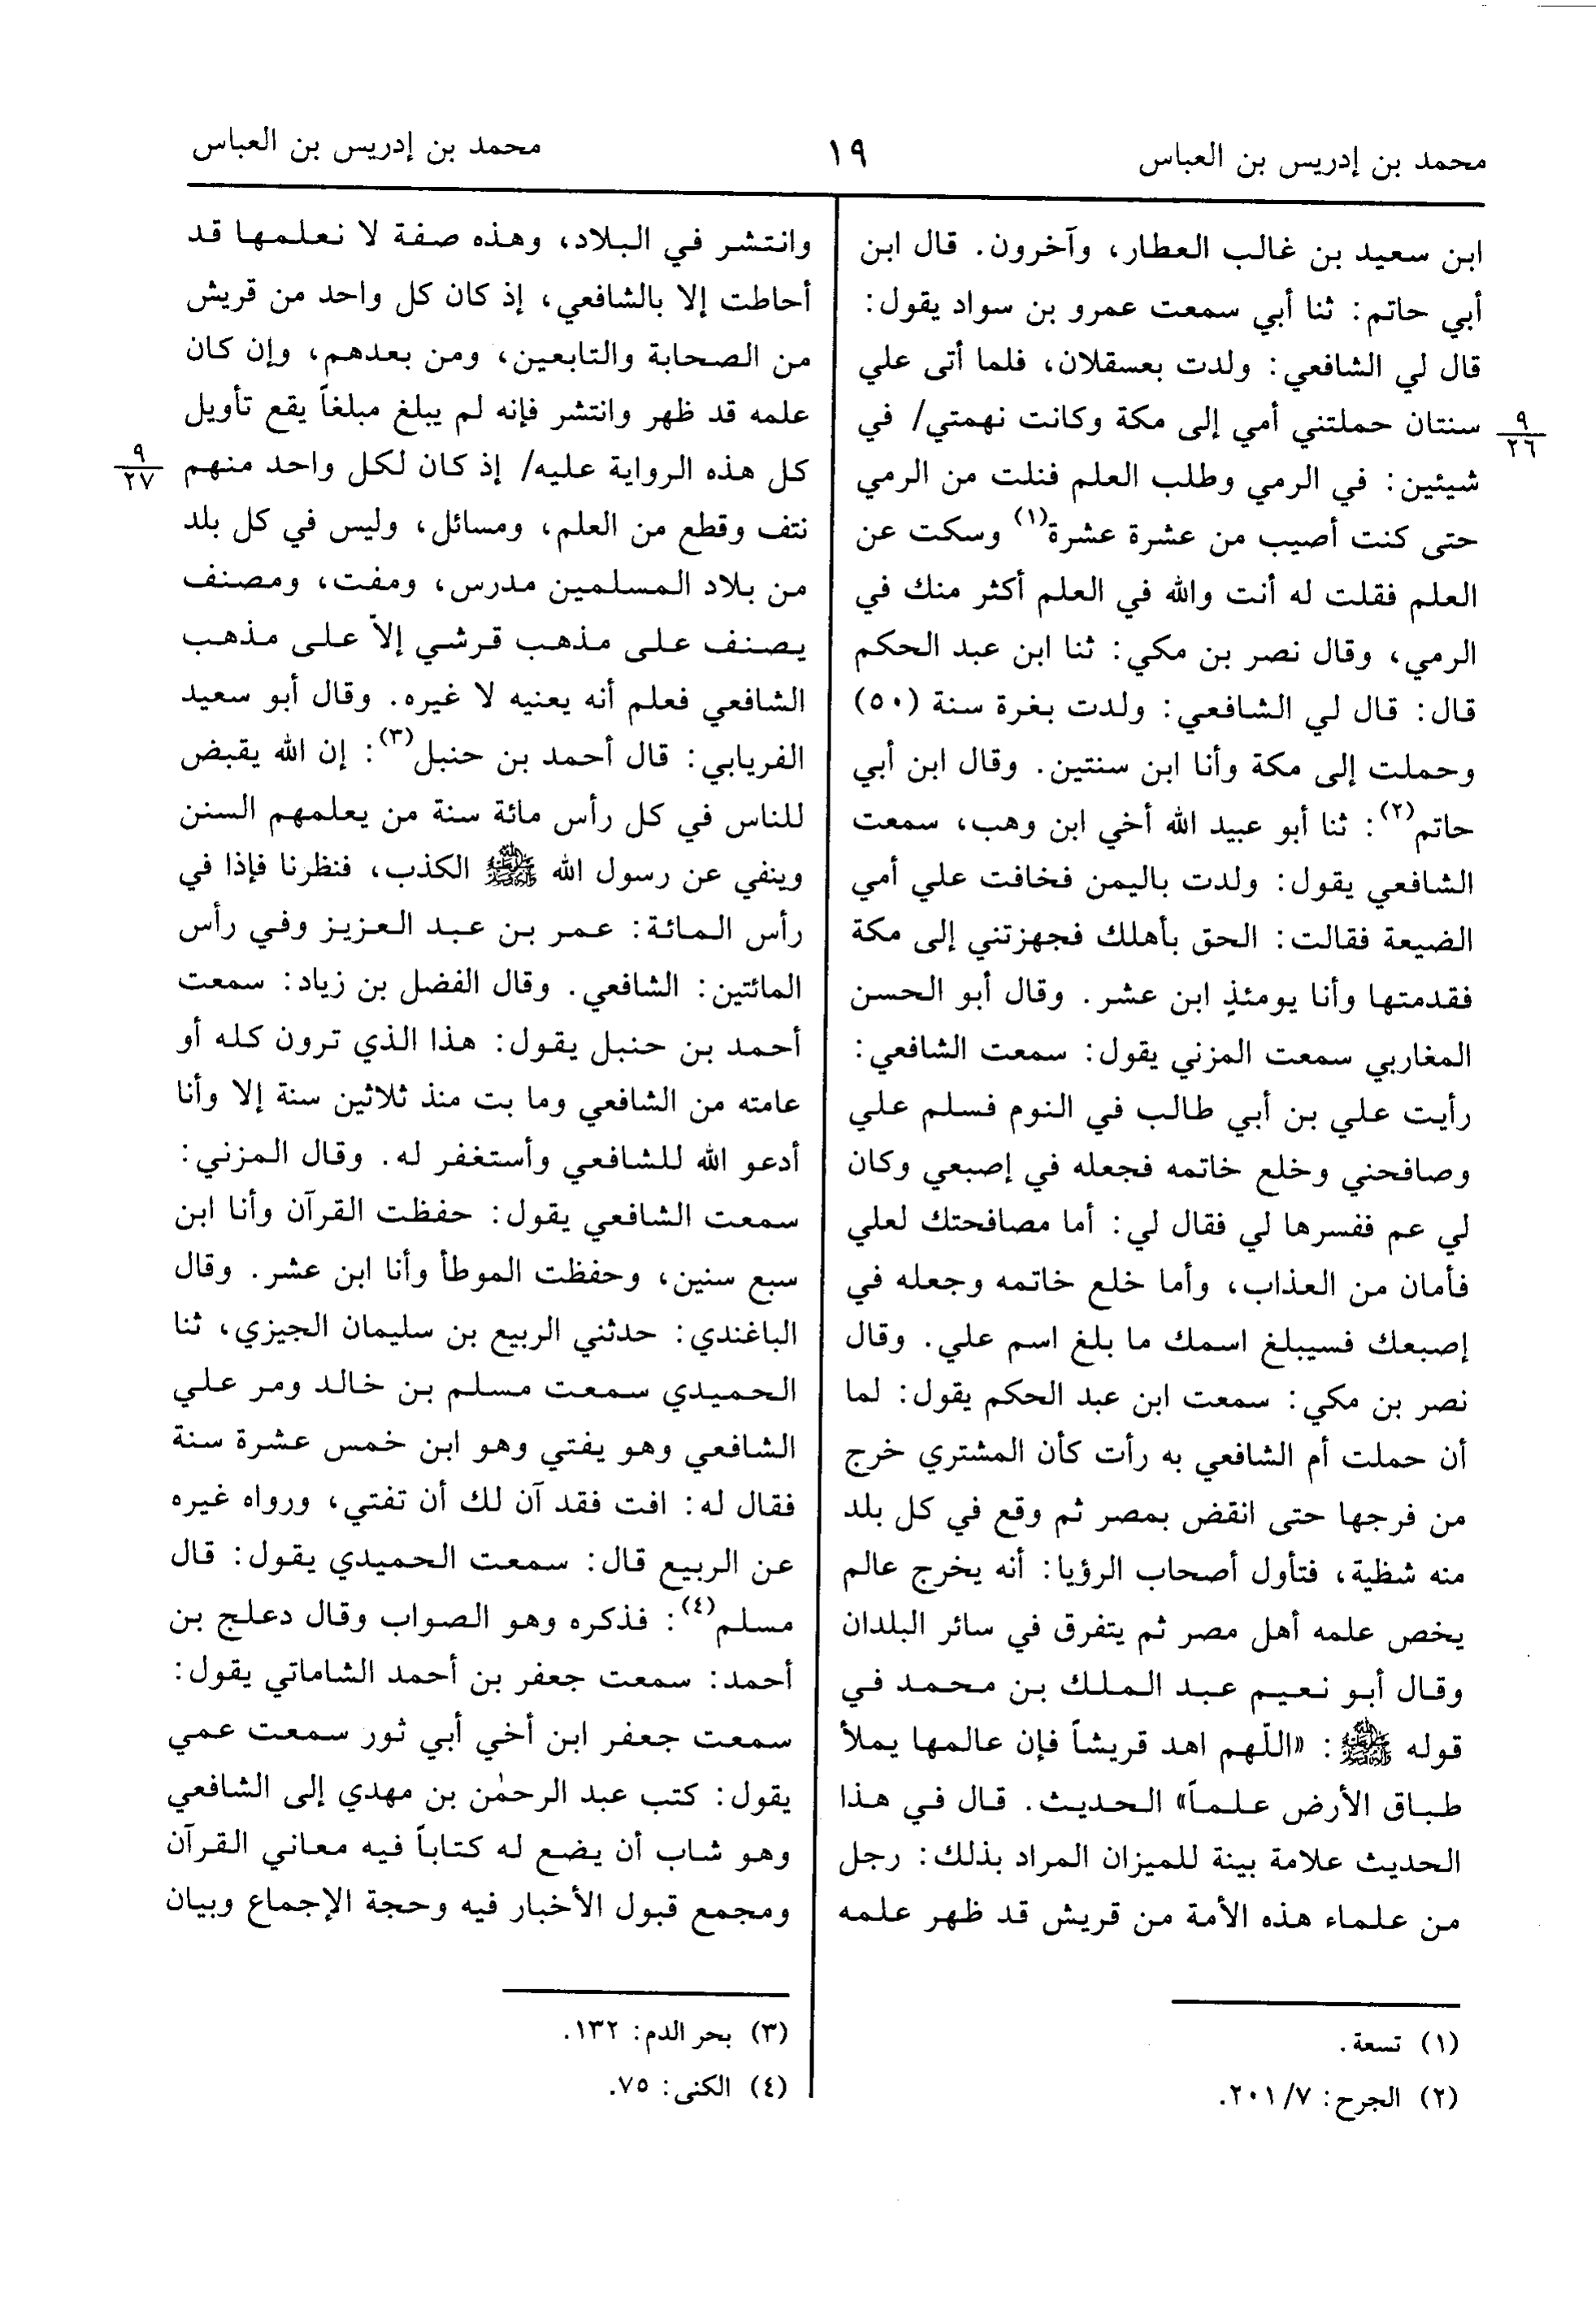 محمد بن إدريس بن العباس ١٩ محمد بن إدريس بن العباس
ابن سعيد بن غالب العطار، وآخرون. قال ابن
أبي حاتم: ثنا أبي سمعت عمرو بن سواد يقول:
قال لي الشافعي: ولدت بعسقلان، فلما أتى علي
سنتان حملتني أمي إلى مكة وكانت نهمتي/ في
٩
٢٦
شيئين: في الرمي وطلب العلم فنلت من الرمي
حتى كنت أصيب من عشرة عشرة(١) وسكت عن
العلم فقلت له أنت والله في العلم أكثر منك في
الرمي، وقال نصر بن مكي: ثنا ابن عبد الحكم
قال: قال لي الشافعي: ولدت بغرة سنة (٥٠)
وحملت إلى مكة وأنا ابن سنتين. وقال ابن أبي
حاتم(٢): ثنا أبو عبيد الله أخي ابن وهب، سمعت
الشافعي يقول: ولدت باليمن فخافت علي أمي
الضيعة فقالت: الحق بأهلك فجهزتني إلى مكة
فقدمتها وأنا يومئذٍ ابن عشر. وقال أبو الحسن
المغاربي سمعت المزني يقول: سمعت الشافعي:
رأيت علي بن أبي طالب في النوم فسلم علي
وصافحني وخلع خاتمه فجعله في إصبعي وكان
لي عم ففسرها لي فقال لي: أما مصافحتك لعلي
فأمان من العذاب، وأما خلع خاتمه وجعله في
إصبعك فسيبلغ اسمك ما بلغ اسم علي. وقال
نصر بن مكي: سمعت ابن عبد الحكم يقول: لما
أن حملت أم الشافعي به رأت كأن المشتري خرج
من فرجها حتى انقض بمصر ثم وقع في كل بلد
منه شظية، فتأول أصحاب الرؤيا: أنه يخرج عالم
يخص علمه أهل مصر ثم يتفرق في سائر البلدان
وقال أبو نعيم عبد الملك بن محمد في
قوله ﷺ: «اللّهم اهد قريشاً فإن عالمها يملأ
طباق الأرض علماً» الحديث. قال في هذا
الحديث علامة بينة للميزان المراد بذلك: رجل
من علماء هذه الأمة من قريش قد ظهر علمه
(١) تسعة.
(٢) الجرح: ٢٠١/٧.
وانتشر في البلاد، وهذه صفة لا نعلمها قد
أحاطت إلا بالشافعي، إذ كان كل واحد من قريش
من الصحابة والتابعين، ومن بعدهم، وإن كان
علمه قد ظهر وانتشر فإنه لم يبلغ مبلغاً يقع تأويل
كل هذه الرواية عليه/ إذ كان لكل واحد منهم
٩
٢٧
نتف وقطع من العلم، ومسائل، وليس في كل بلد
من بلاد المسلمين مدرس، ومفت، ومصنف
يصنف على مذهب قرشي إلاّ على مذهب
الشافعي فعلم أنه يعنيه لا غيره. وقال أبو سعيد
الفريابي: قال أحمد بن حنبل(٣): إن الله يقبض
للناس في كل رأس مائة سنة من يعلمهم السنن
وينفي عن رسول الله ﷺ الكذب، فنظرنا فإذا في
رأس المائة: عمر بن عبد العزيز وفي رأس
المائتين: الشافعي. وقال الفضل بن زياد: سمعت
أحمد بن حنبل يقول: هذا الذي ترون كله أو
عامته من الشافعي وما بت منذ ثلاثين سنة إلا وأنا
أدعو الله للشافعي وأستغفر له. وقال المزني:
سمعت الشافعي يقول: حفظت القرآن وأنا ابن
سبع سنين، وحفظت الموطأ وأنا ابن عشر. وقال
الباغندي: حدثني الربيع بن سليمان الجيزي، ثنا
الحميدي سمعت مسلم بن خالد ومر علي
الشافعي وهو يفتي وهو ابن خمس عشرة سنة
فقال له: افت فقد آن لك أن تفتي، ورواه غيره
عن الربيع قال: سمعت الحميدي يقول: قال
مسلم(٤): فذكره وهو الصواب وقال دعلج بن
أحمد: سمعت جعفر بن أحمد الشاماتي يقول:
سمعت جعفر ابن أخي أبي ثور سمعت عمي
يقول: كتب عبد الرحمٰن بن مهدي إلى الشافعي
وهو شاب أن يضع له كتاباً فيه معاني القرآن
ومجمع قبول الأخبار فيه وحجة الإجماع وبيان
(٣) بحر الدم: ١٣٢.
(٤) الكنى: ٧٥.